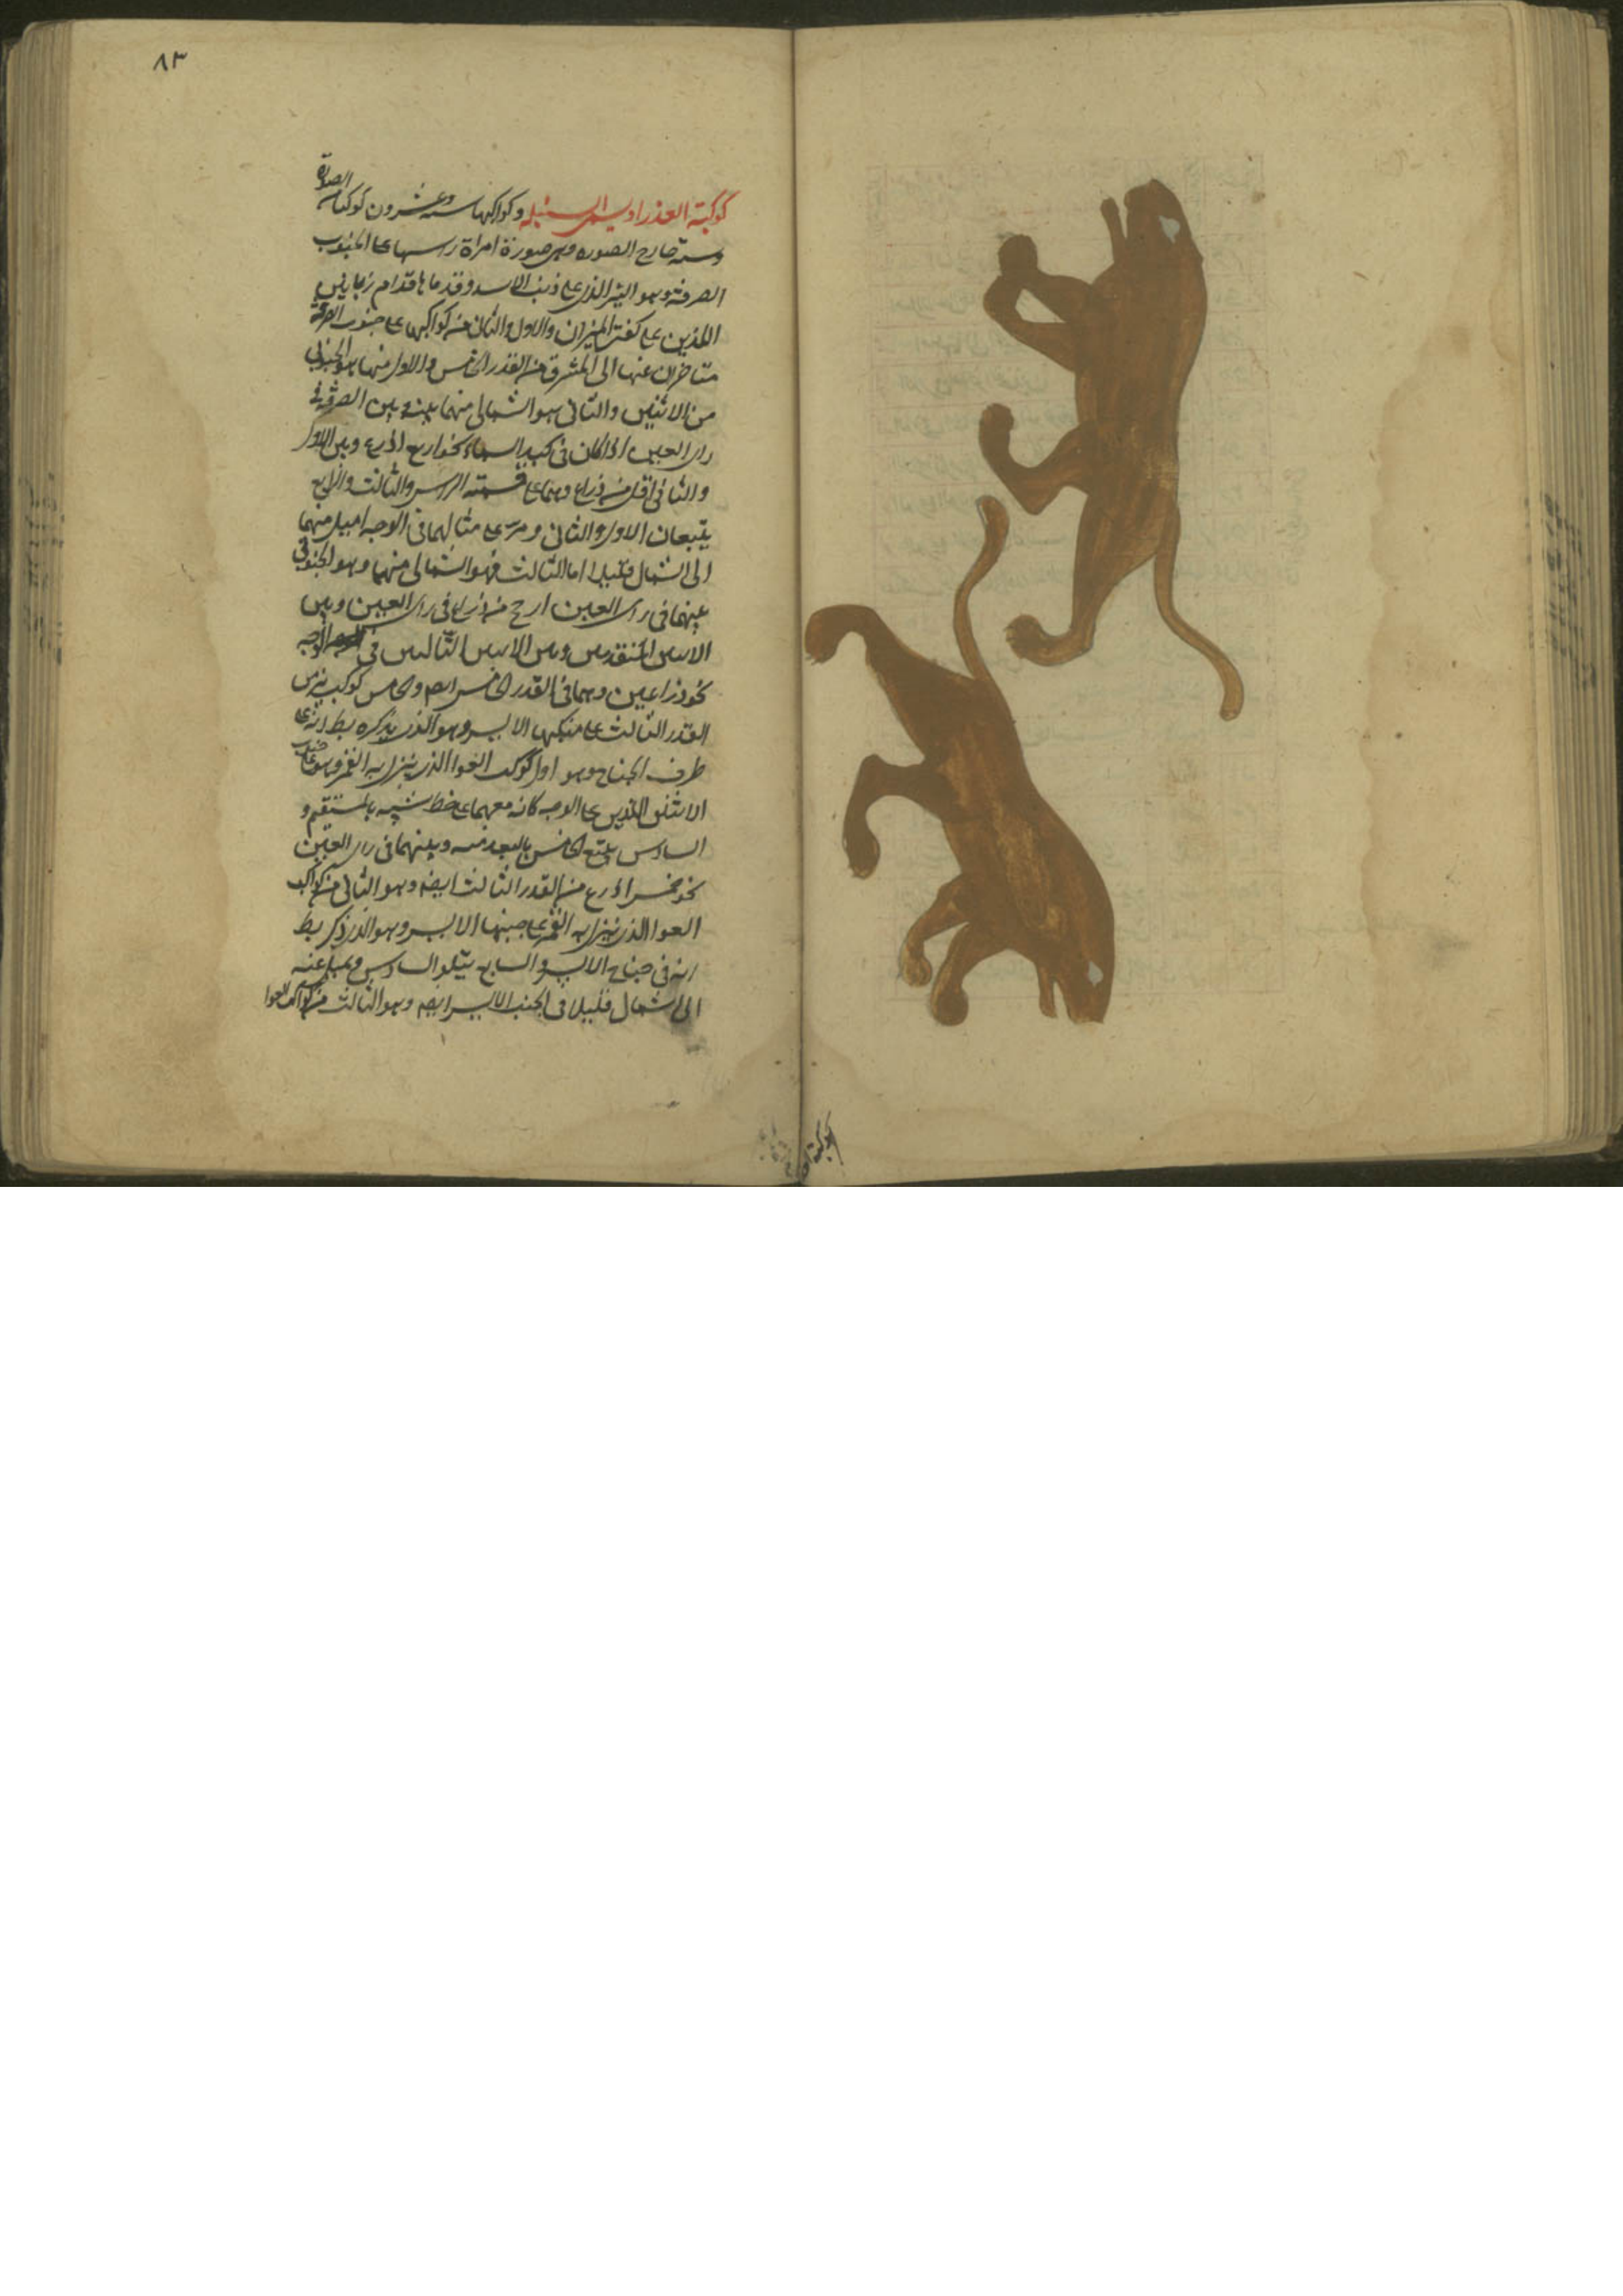 ٨٣
كوكبة العذرا ويسمى السنبله وكواكبها ستة وعشرون كوكبا من الصورة
وستة خارج الصوره وهى صورة امراة راسها على الجنوب
الصرفة وهو النير الذى على ذنب الاسد وقدماها قدام زبانين
اللذين على كفتى الميزان والاول والثانى من كواكبها على جنوب الصرفة
متاخران عنها الى المشرق من القدر الخامس والاول منها هو الجنوبى
من الاثنين والثانى هو الشمالى منهما بينه وبين الصرفة فى
راى العين اذا كان فى كبد السماء نحو اربع اذرع وبين الاول
والثانى اقل من ذراع وهما على قمة الراس والثالث والرابع
يتبعان الاول والثانى وهى على مثالهما فى الوجه اميل منهما
الى الشمال قليلا اما الثالث فهو الشمالى منهما وهو الجنوبى
بينهما فى راى العين ارجح من ذراع فى راى العين وبين
الاثنين المتقدمين وبين الاثنين التاليين فى الوجه
نحو ذراعين وهما فى القدر الخامس ايضا والخامس كوكب نير من
القدر الثالث على منكبها الايسر وهو الذى يذكره بط انه على
طرف الجناح وهو اول كوكب العوا الذى ينزل به القمر وهو على جنوب
الاثنين اللذين على الوجه كانه معهما على خط شبيه بالمستقيم و
السادس يتبع الخامس بالبعد منه وبينهما فى راى العين
نحو خمس اذرع من القدر الثالث ايضا وهو الثانى من كواكب
العوا الذى ينزل به القمر على جنبها الايسر وهو الذى ذكر بط
انه فى جناح الايسر والسابع يتلو السادس ويميل عنه
الى الشمال قليلا فى الجنب الايسر ايضا وهو الثالث من كواكب العوا
كوكبة